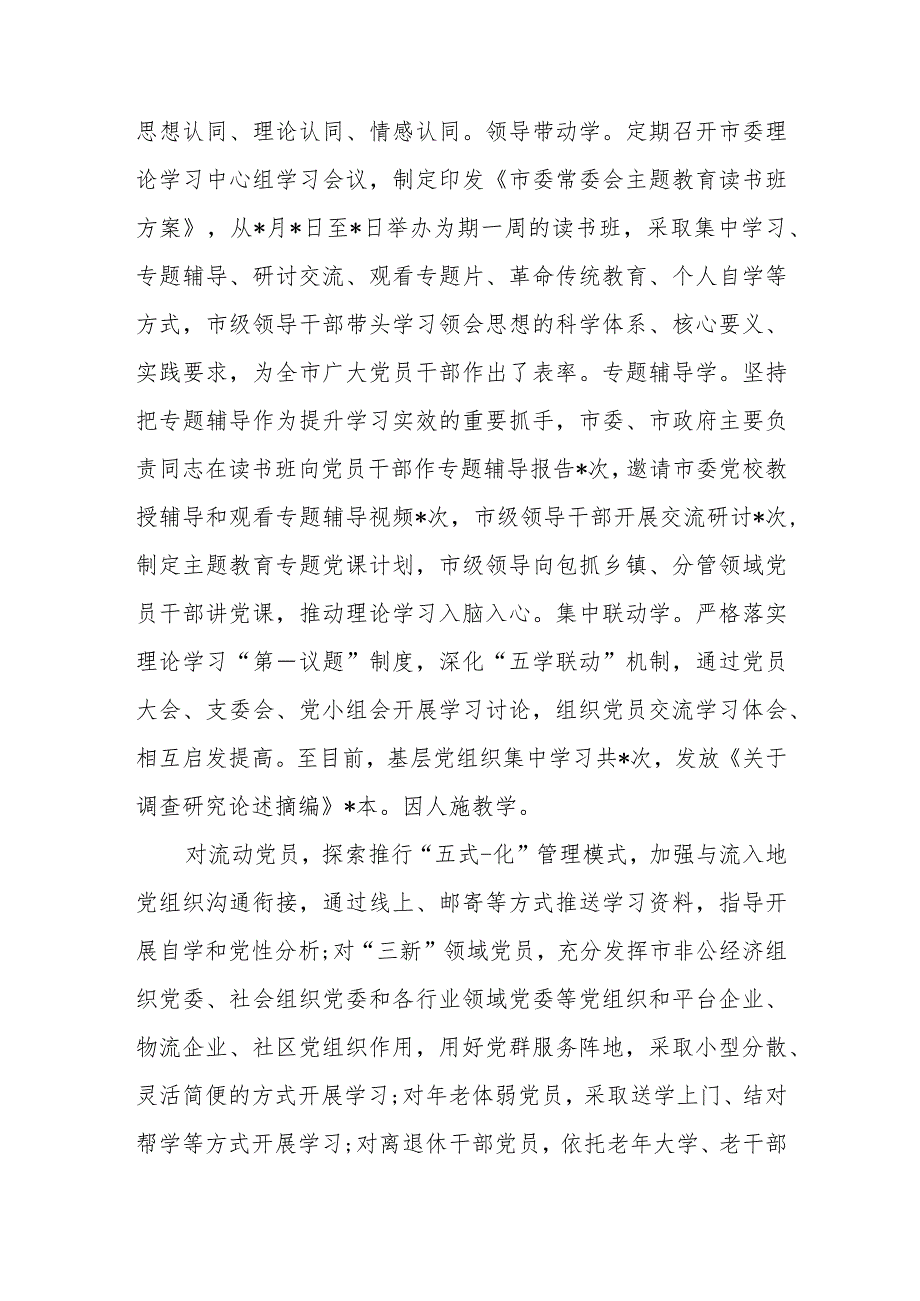 思想认同、理论认同、情感认同。领导带动学。定期召开市委理
论学习中心组学习会议，制定印发《市委常委会主题教育读书班
方案》，从*月*日至*日举办为期一周的读书班，采取集中学习、
专题辅导、研讨交流、观看专题片、革命传统教育、个人自学等
方式，市级领导干部带头学习领会思想的科学体系、核心要义、
实践要求，为全市广大党员干部作出了表率。专题辅导学。坚持
把专题辅导作为提升学习实效的重要抓手，市委、市政府主要负
责同志在读书班向党员干部作专题辅导报告*次，邀请市委党校教
授辅导和观看专题辅导视频*次，市级领导干部开展交流研讨*次，
制定主题教育专题党课计划，市级领导向包抓乡镇、分管领域党
员干部讲党课，推动理论学习入脑入心。集中联动学。严格落实
理论学习“第一议题”制度，深化“五学联动”机制，通过党员
大会、支委会、党小组会开展学习讨论，组织党员交流学习体会、
相互启发提高。至目前，基层党组织集中学习共*次，发放《关于
调查研究论述摘编》*本。因人施教学。
对流动党员，探索推行“五式-化”管理模式，加强与流入地
党组织沟通衔接，通过线上、邮寄等方式推送学习资料，指导开
展自学和党性分析;对“三新”领域党员，充分发挥市非公经济组
织党委、社会组织党委和各行业领域党委等党组织和平台企业、
物流企业、社区党组织作用，用好党群服务阵地，采取小型分散、
灵活简便的方式开展学习;对年老体弱党员，采取送学上门、结对
帮学等方式开展学习;对离退休干部党员，依托老年大学、老干部